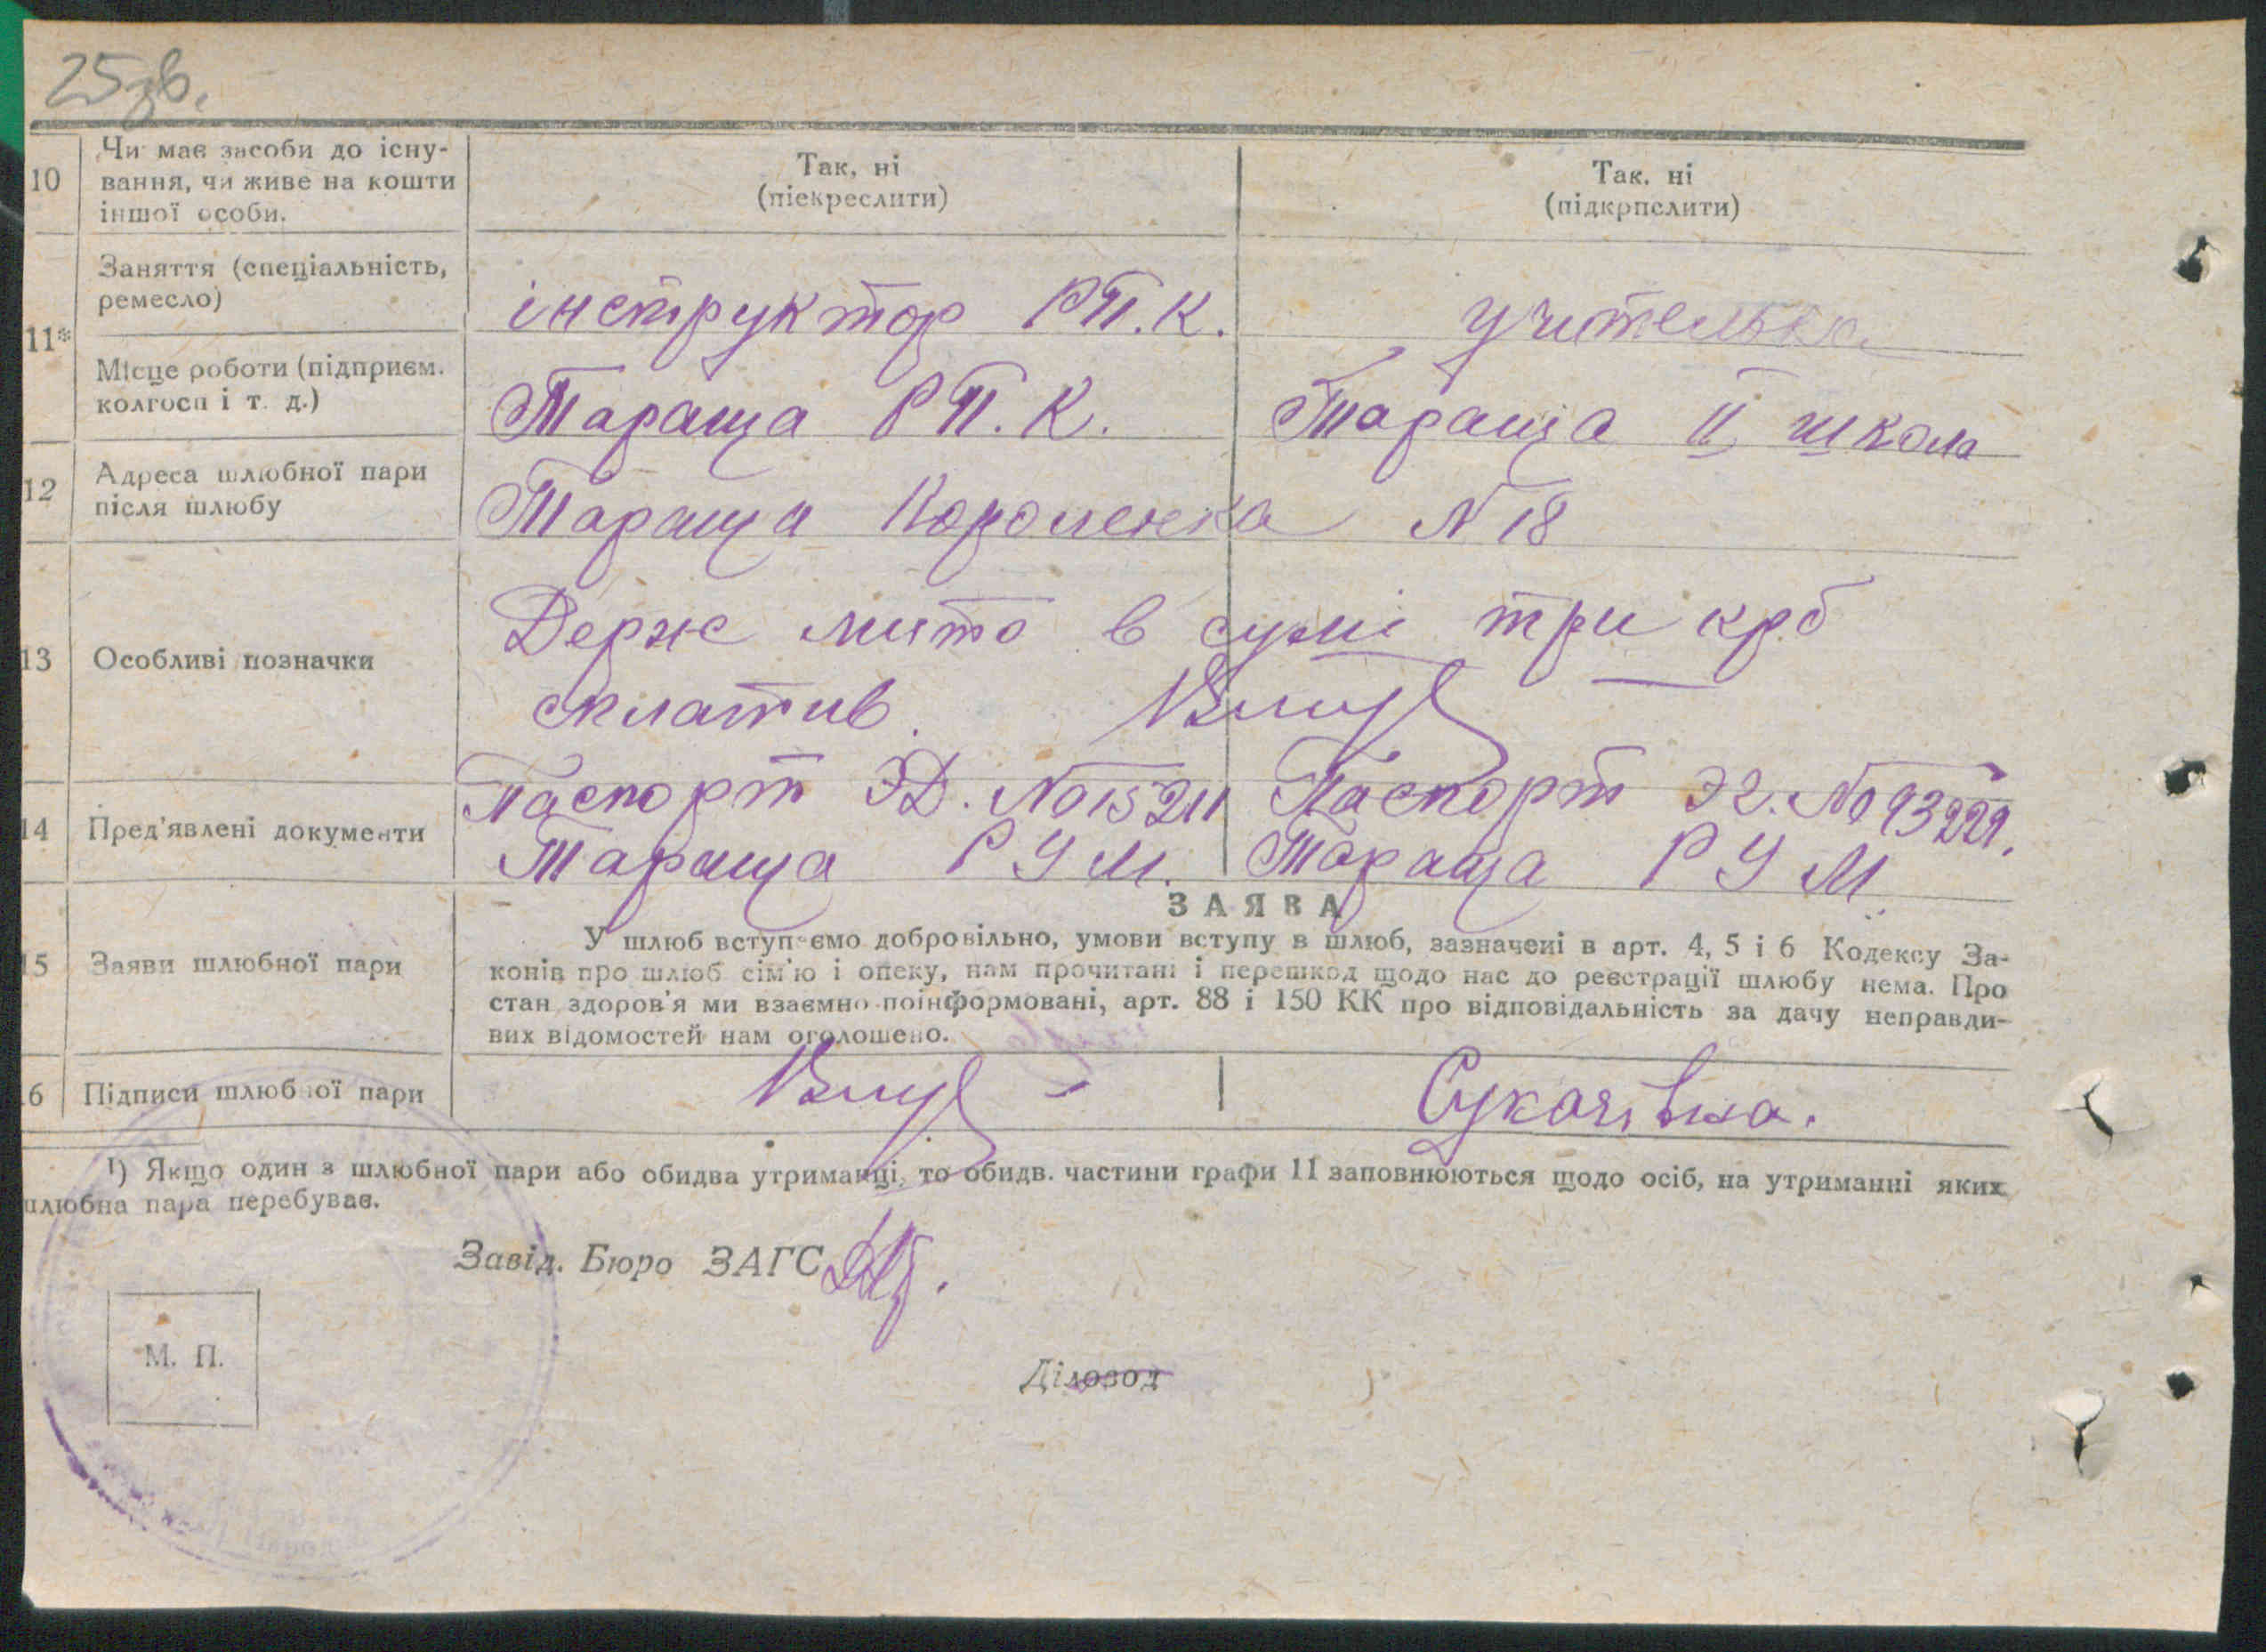 25зв.
10 Чи має засоби до існу-
вання, чи живе на кошти
іншої особи.
Так, ні
(піекреслити)
Так. ні
(підкрпслити)
11*
Заняття (спеціальність,
ремесло)
інструктор РП.К.
учителька.
Місце роботи (підприєм.
колгосп і т. д.)
Тараща РП.К.
Тараща ІІ школа
12 Адреса шлюбної пари
після шлюбу
Тараща Короленка N 18
13 Особливі позначки
Держ мито в сумі три крб
сплатив.
14 Пред'явлені документи
Паспорт ЭД. №15211
Тараща РУМ.
Паспорт Э2. №93229.
Тараща РУМ
ЗАЯВА
15 Заяви шлюбної пари
У шлюб вступаємо добровільно, умови вступу в шлюб, зазначені в арт. 4, 5 і 6 Кодексу За-
конів про шлюб сім'ю і опеку, нам прочитані і перешкод щодо нас до реєстрації шлюбу нема. Про
стан здоров'я ми взаємно поінформовані, арт. 88 і 150 КК про відповідальність за дачу неправди-
вих відомостей нам оголошено.
16 Підписи шлюбної пари
Сукачівна.
1) Якщо один з шлюбної пари або обидва утриманці, то обидв. частини графи 11 заповнюються щодо осіб, на утриманні яких
шлюбна пара перебуває.
Завід. Бюро ЗАГС
М. П.
Діловод